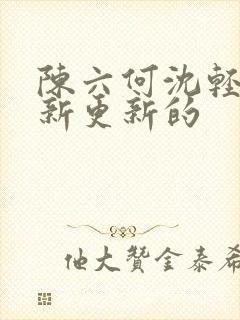 陳六何沈輕
新更新的
他大贊金泰希